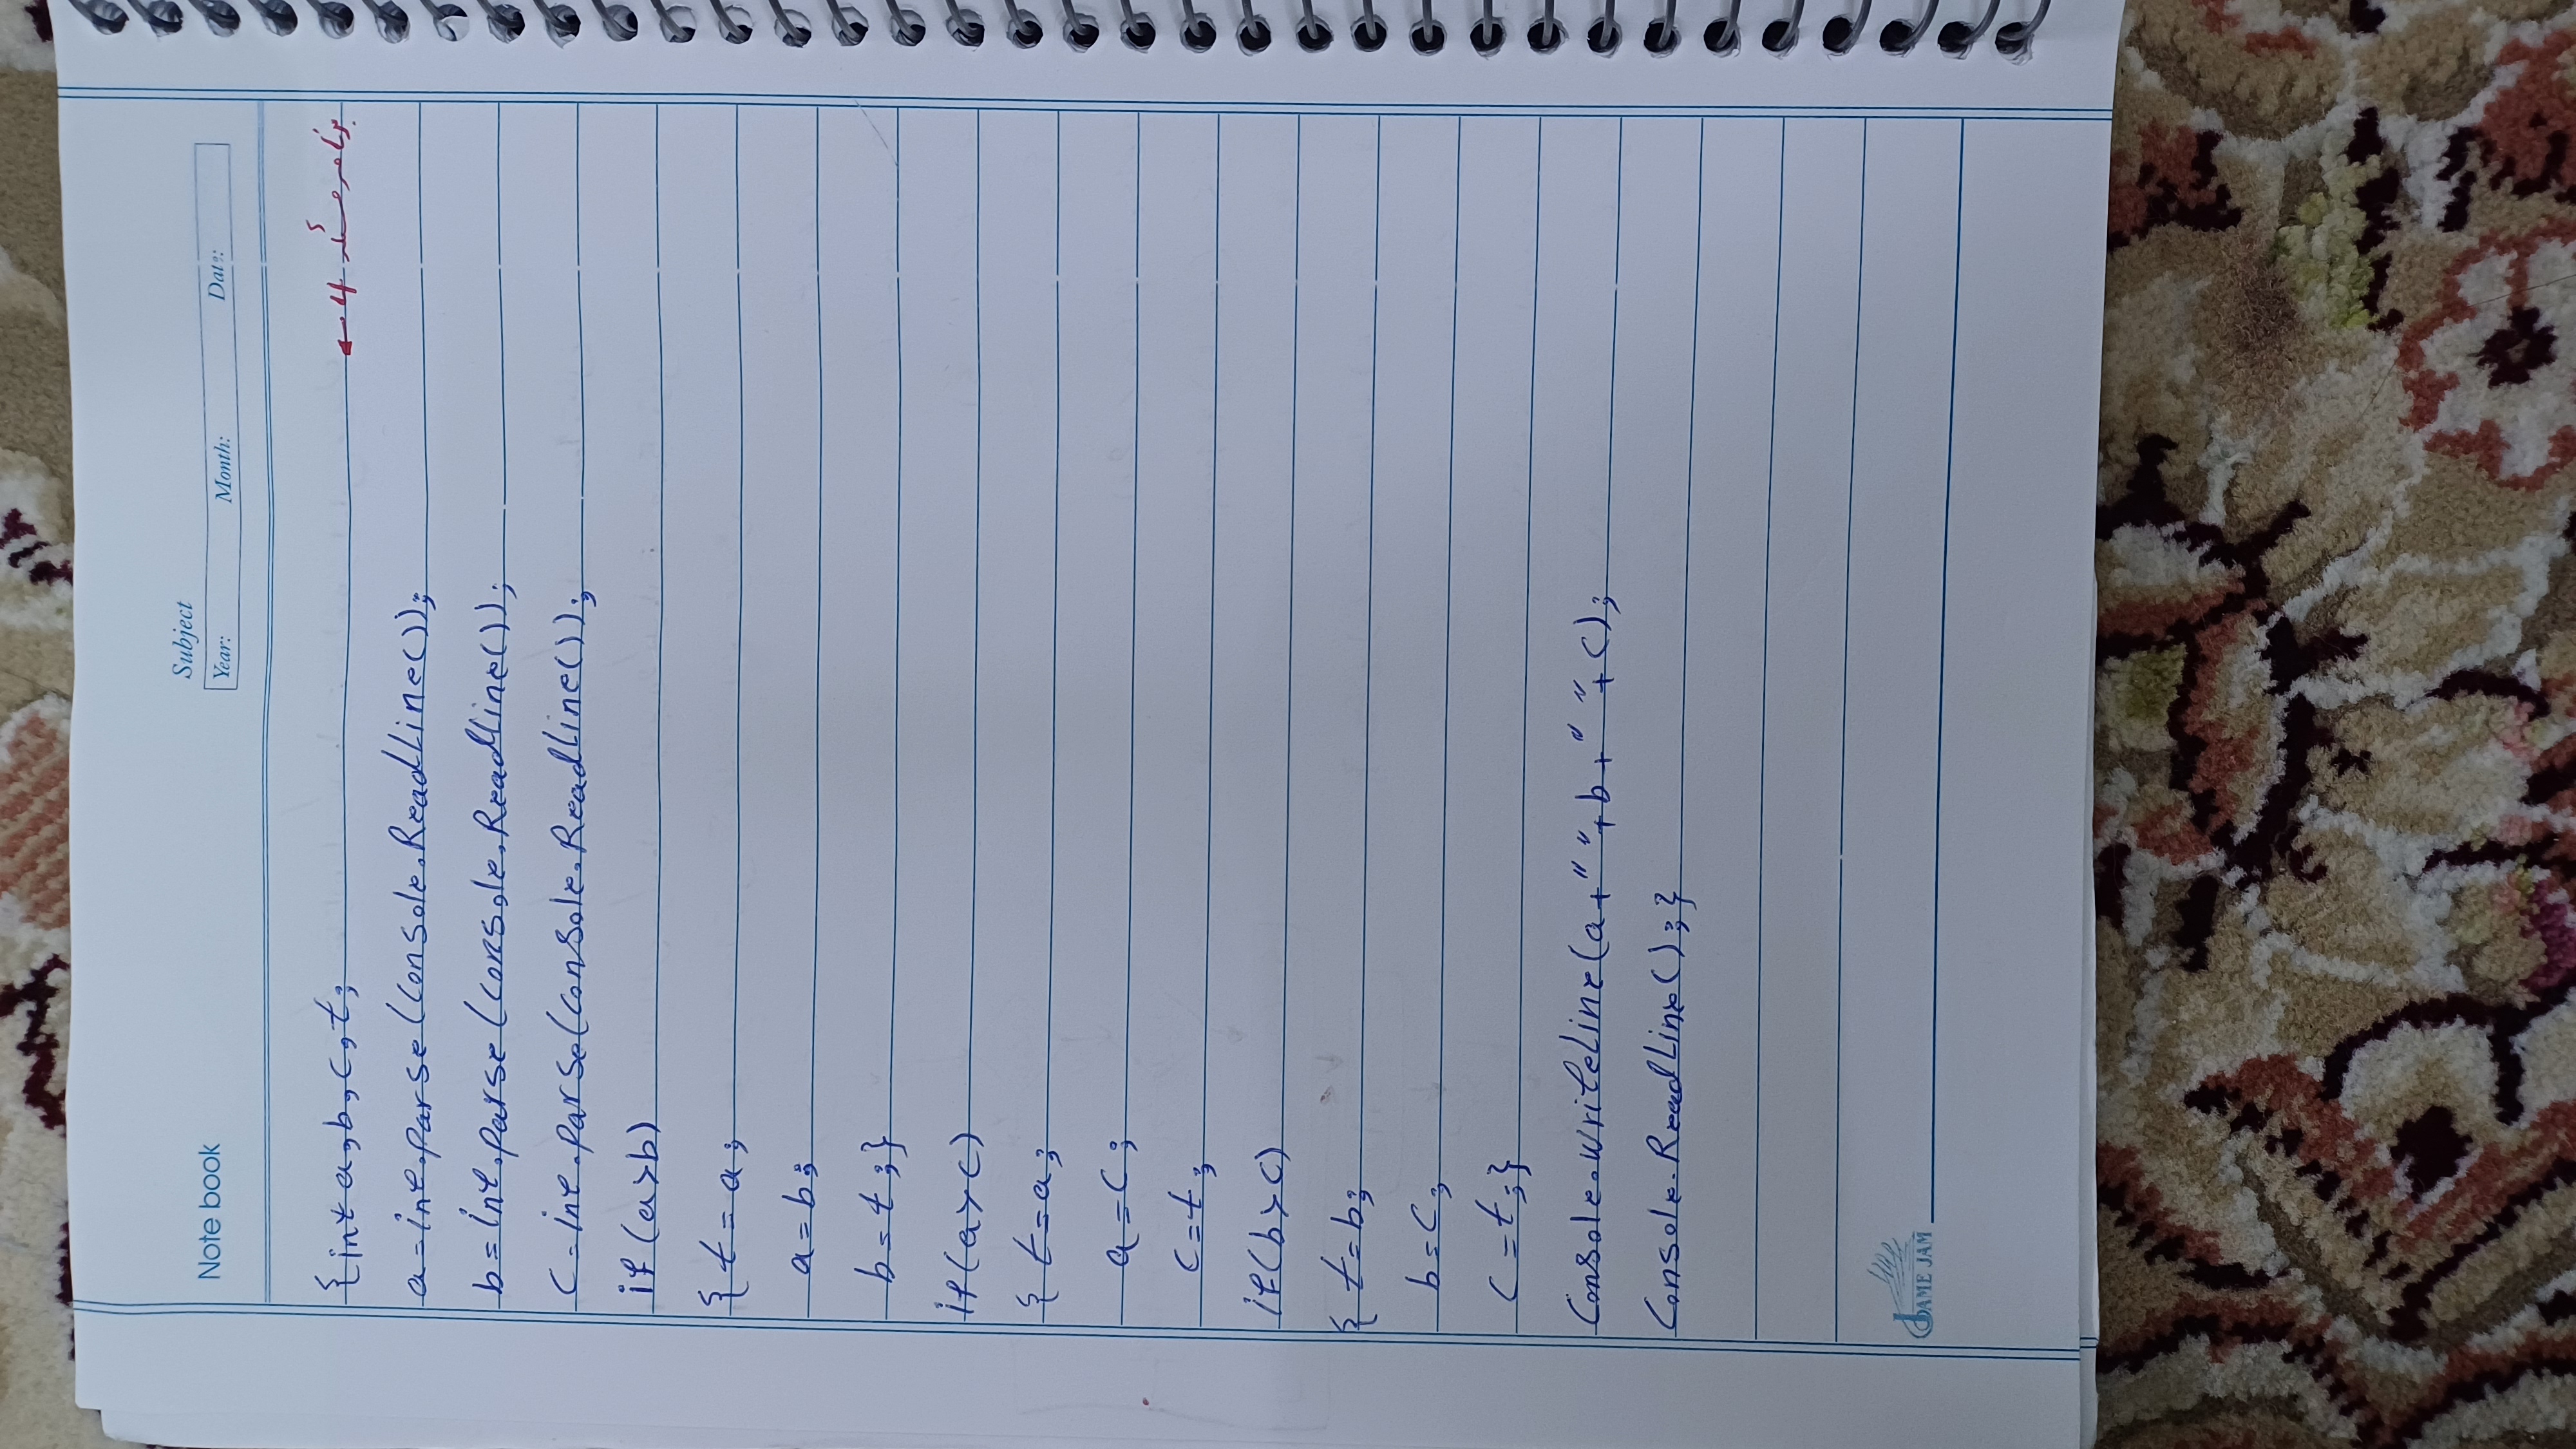 Note book
Subject
Year: Month: Date:
{int a,b,c,t; 4
a=int.parse(Console.ReadLine());
b=int.parse(Console.ReadLine());
c=int.parse(Console.ReadLine());
if(a>b)
{t=a;
a=b;
b=t;}
if(a>c)
{t=a;
a=c;
c=t;
if(b>c)
{t=b;
b=c;
c=t;}
Console.WriteLine(a+" "+b+" "+c);
Console.ReadLine();}
JAME JAM